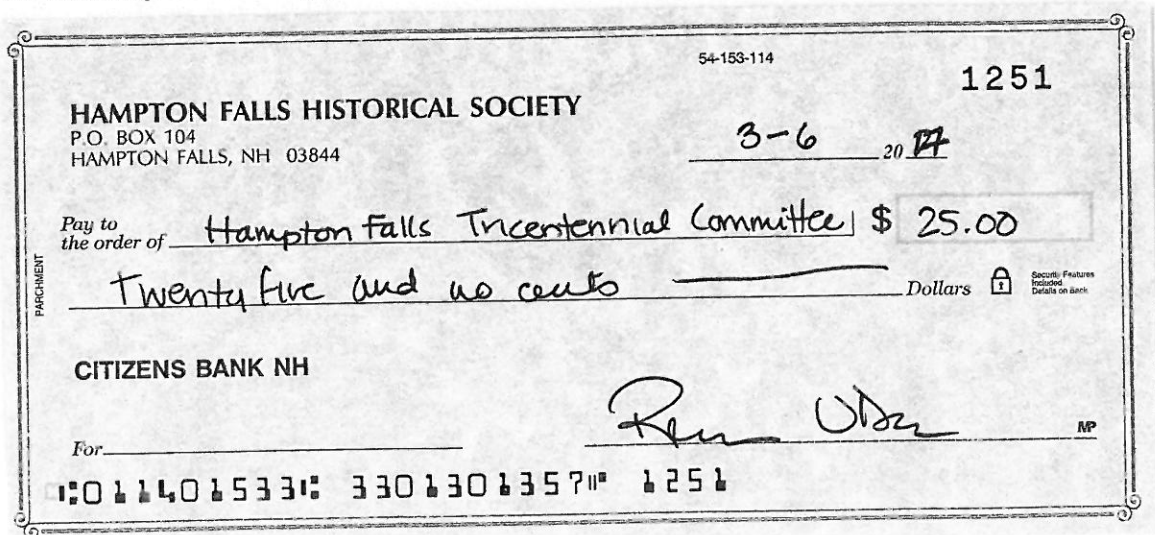 54-153-114
1251
HAMPTON FALLS HISTORICAL SOCIETY
P.O. BOX 104
HAMPTON FALLS, NH 03844
3-6 20
Pay to the order of Hampton Falls Tricentennial Committee $ 25.00
PARCHMENT
Twenty five and no cents Dollars
Security Features
Included
Details on Back
CITIZENS BANK NH
For
MP
⑆011401533⑆ 3301301357⑈ 1251